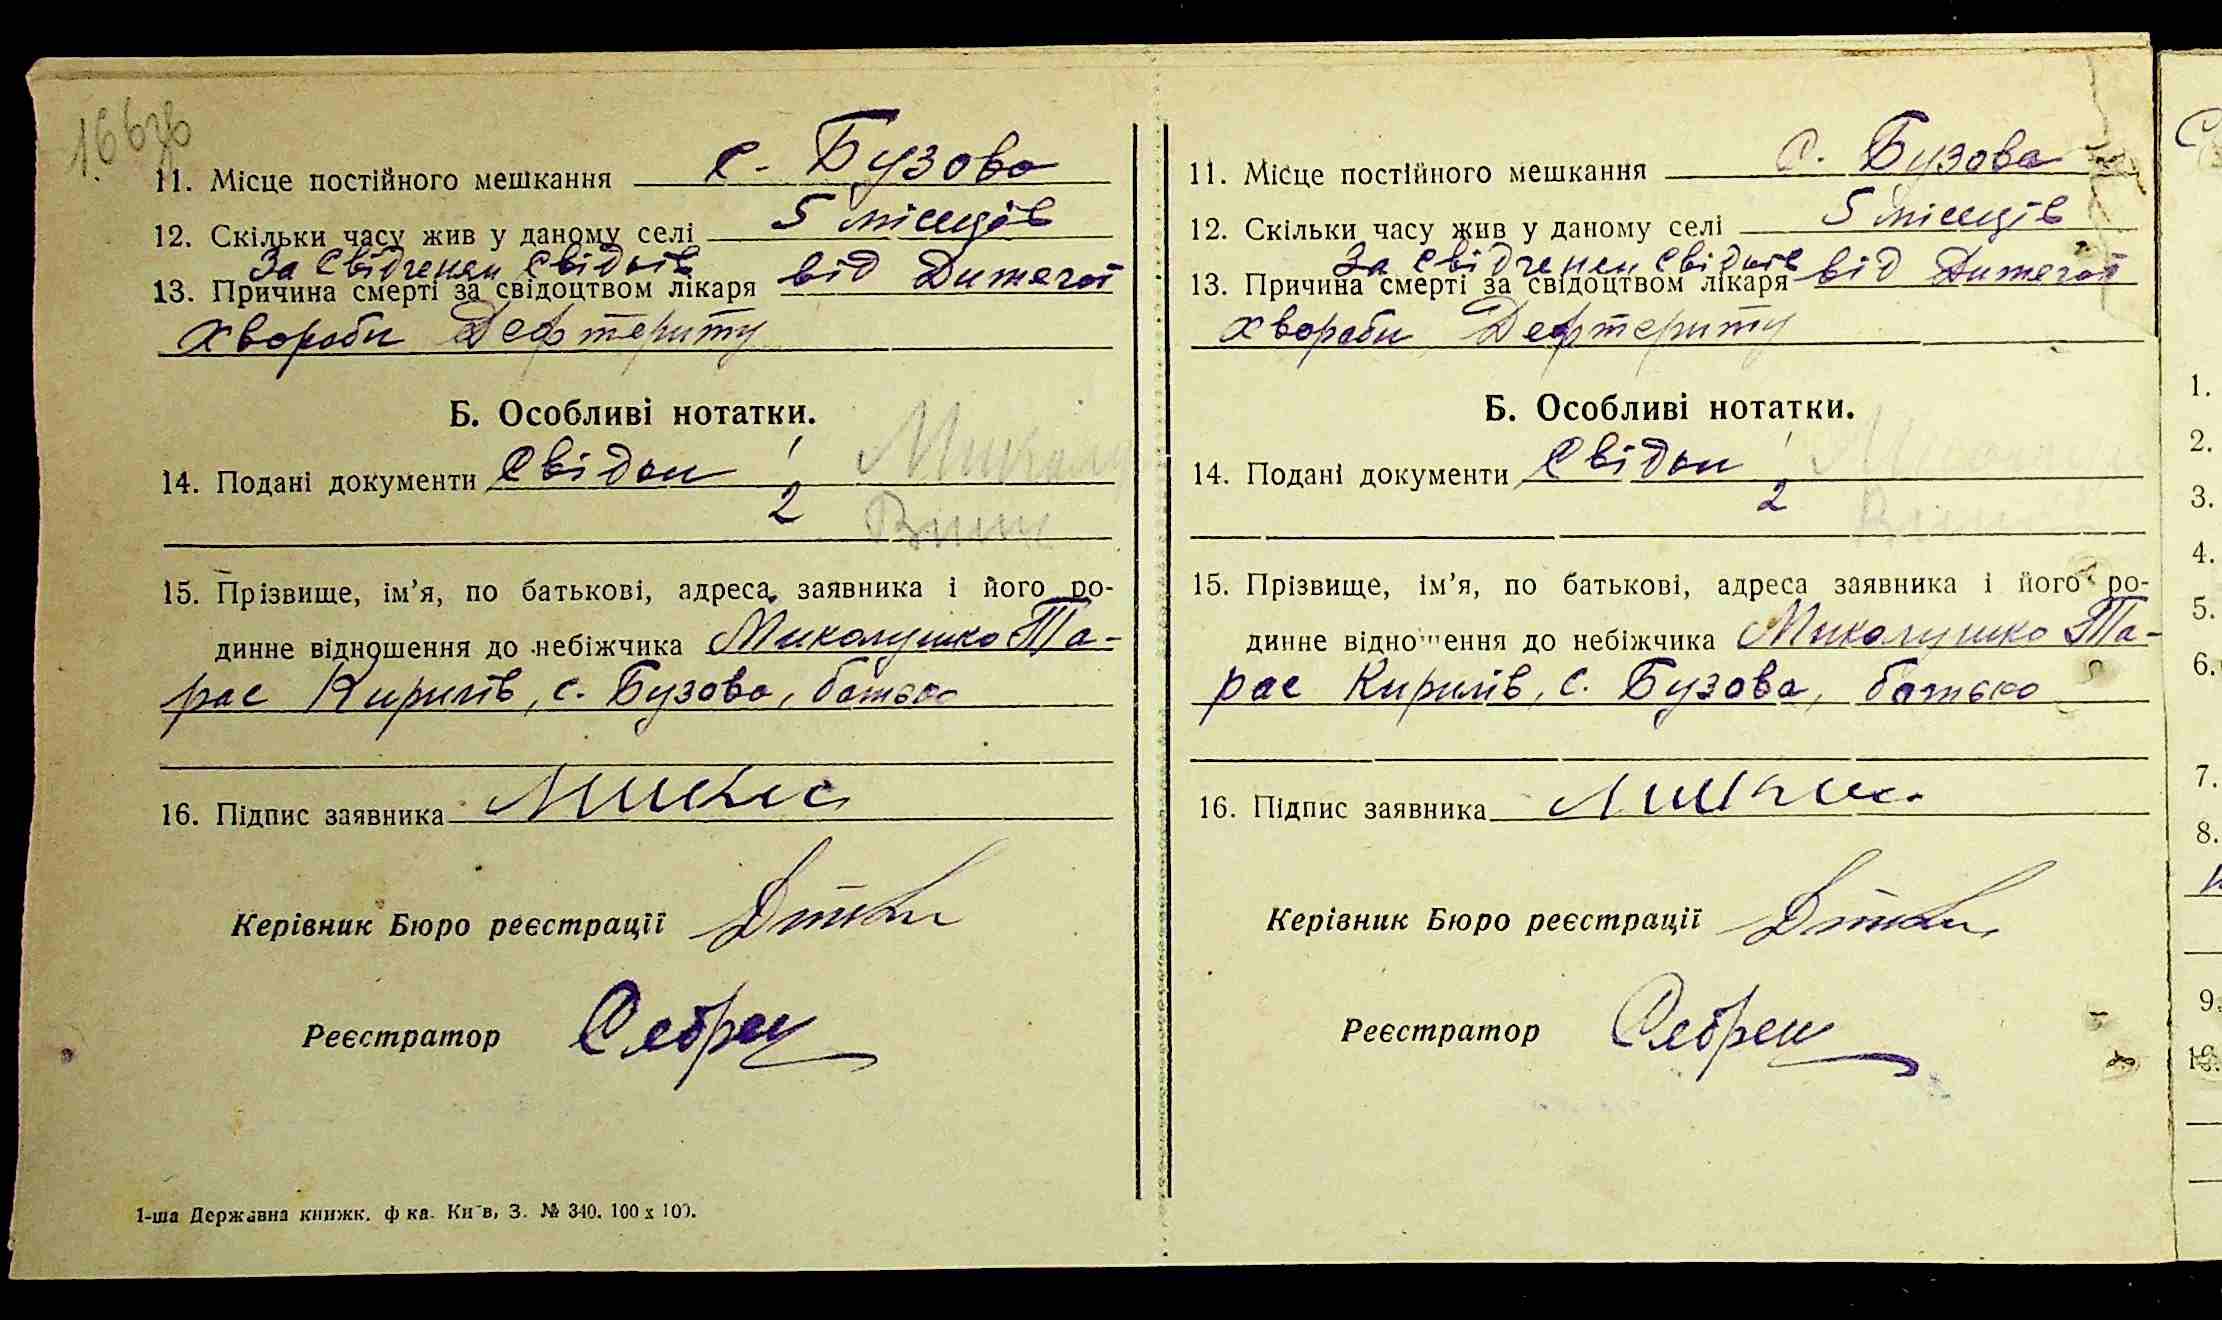 11. Місце постійного мешкання с. Бузова
12. Скільки часу жив у даному селі 5 місяців
За свідченен свідків
13. Причина смерті за свідоцтвом лікаря від Дитячої
хвороби Дефтериту
Б. Особливі нотатки.
14. Подані документи Свідки 1
2
15. Прізвище, ім’я, по батькові, адреса, заявника і його ро-
динне відношення до небіжчика Миколушко Та-
рас Кирилів, с. Бузова, батько
16. Підпис заявника
Керівник Бюро реєстрації
Реєстратор
1-ша Державна книжк. ф ка. Київ, З. № 340. 100 х 100.
11. Місце постійного мешкання с. Бузова
12. Скільки часу жив у даному селі 5 місяців
За свідченен свідків
13. Причина смерті за свідоцтвом лікаря від Дитячої
хвороби Дефтериту
Б. Особливі нотатки.
14. Подані документи Свідки 1
2
15. Прізвище, ім’я, по батькові, адреса заявника і його ро-
динне відношення до небіжчика Миколушко Та-
рас Кирилів, с. Бузова, батько
16. Підпис заявника
Керівник Бюро реєстрації
Реєстратор
1.
2.
3.
4.
5.
6.
7.
8.
9.
10.